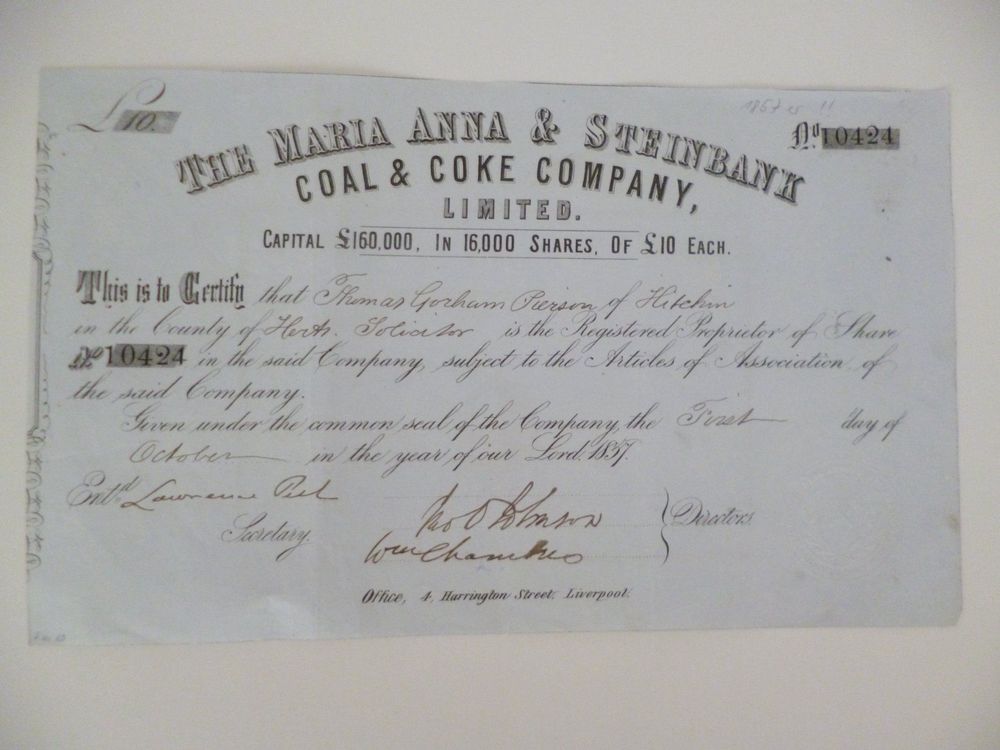 £10.
1857
Nº 10424
THE MARIA ANNA & STEINBANK
COAL & COKE COMPANY,
LIMITED.
CAPITAL £160,000, IN 16,000 SHARES, OF £10 EACH.
This is to Certify that Thomas Gorham Pierson of Hitchin
in the County of Herts. Solicitor is the Registered Proprietor of Share
Nº 10424 in the said Company, subject to the Articles of Association of
the said Company.
Given under the common seal of the Company, the First day of
October in the year of our Lord 1857.
Entd Lawrence Peel
Secretary.
Directors.
Wm Chambers
Office, 4, Harrington Street, Liverpool.